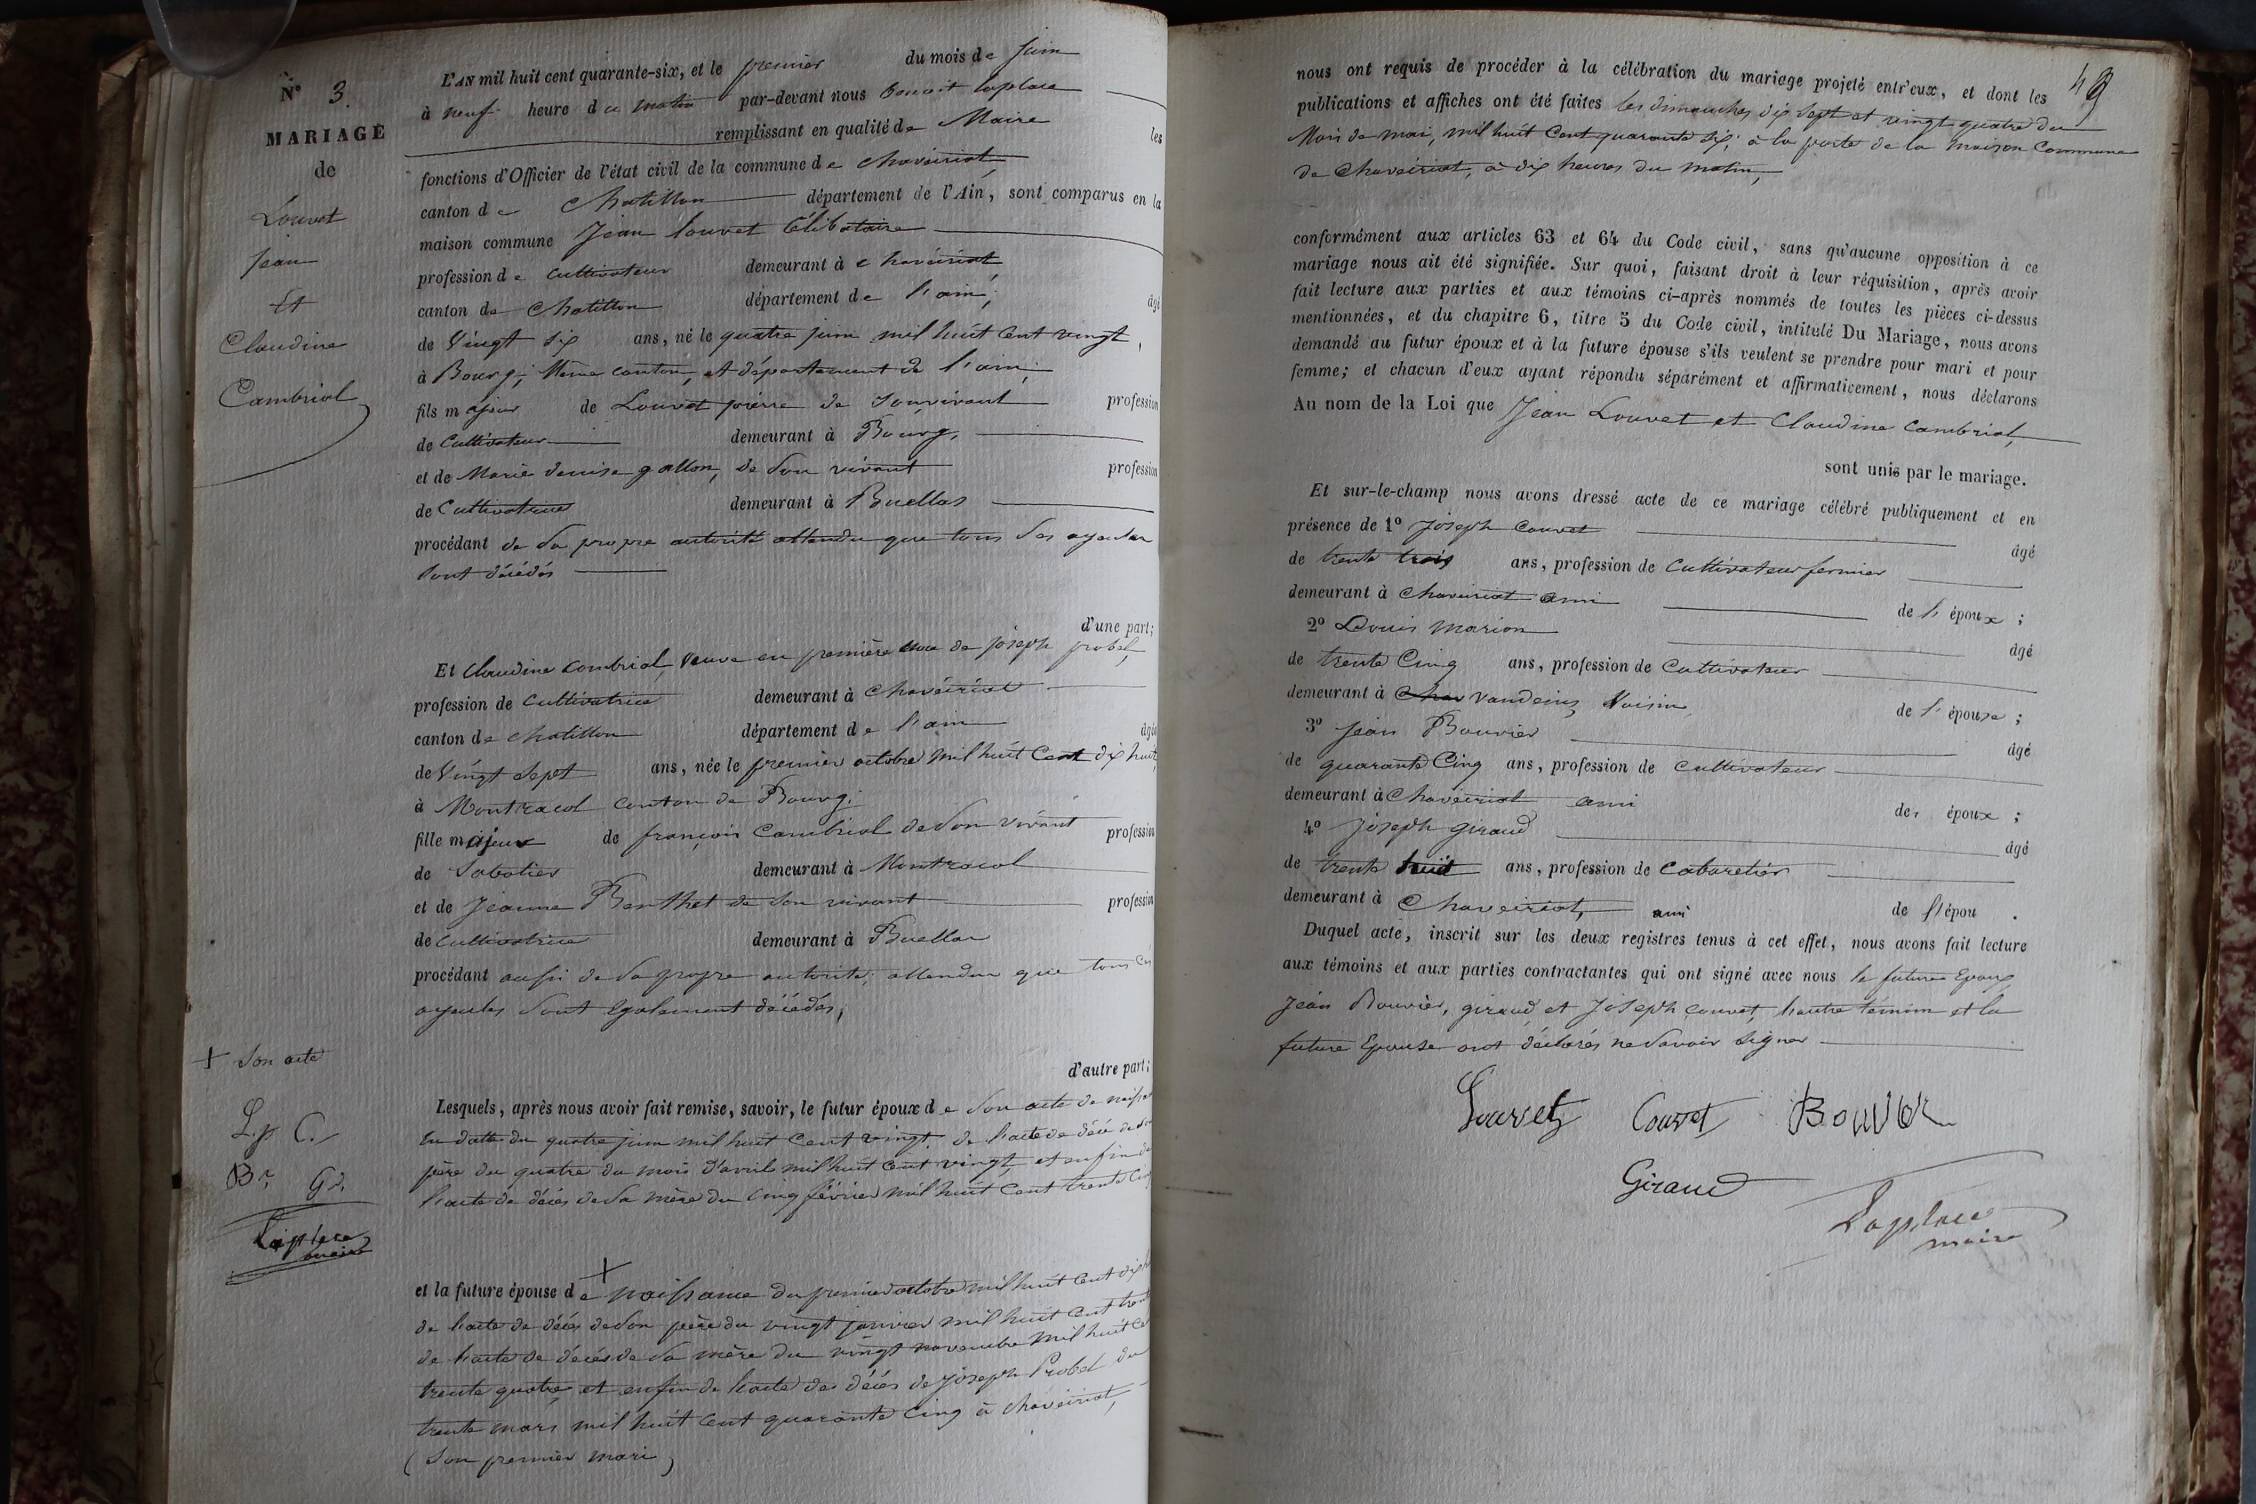 N° 3.
MARIAGE
de
Louvet
jean
Et
Claudine
Cambriol
L'AN mil huit cent quarante-six, et le premier du mois de juin
à neuf heure du matin par-devant nous benoit laplace
remplissant en qualité de Maire les
fonctions d'Officier de l'état civil de la commune de chaveiriat,
canton de chatillon département de l'Ain, sont comparus en la
maison commune Jean louvet Célibataire
profession de cultivateur demeurant à chavéiriat
canton de chatillon département de l'ain, âgé
de Vingt six ans, né le quatre juin mil huit cent vingt,
à Bourg, Même canton, et département de l'ain,
fils majeur de Louvet pierre de son vivant profession
de Cultivateur demeurant à Bourg,
et de Marie denise gallon, de son vivant profession
de Cultivatrice demeurant à Buellas
procédant de sa propre autorité attendu que tous ses ayeules
sont décédés
d'une part;
Et Claudine cambriol, veuve en première de joseph probel,
profession de cultivatrice demeurant à chavéiriat
canton de chatillon département de l'ain âgée
de Vingt sept ans, née le premier octobre mil huit Cent dix huit,
à Montracol canton de Bourg;
fille majeur de françois Cambriol de son vivant profession
de Sabotier demeurant à Montracol
et de Jeanne Berthet de son vivant profession
de cultivatrice demeurant à Buellas
procédant aussi de sa propre autorité; attendu que tous ces
ayeules sont Egalement décédés,
d'autre part;
+ son acte
L. p C.
Br Gd.
Laplace
maire
Lesquels, après nous avoir fait remise, savoir, le futur époux de son acte de naissance
en datte du quatre juin mil huit Cent vingt, de l'acte de décé de son
père du quatre du mois d'avril mil huit cent vingt, et enfin de
l'acte de décés de sa mère du cinq février mil huit Cent trente cinq
et la future épouse de + naissance du premier octobre mil huit Cent dix huit
de l'acte de décés de son père du vingt janvier mil huit Cent trente
de l'acte de décés de sa mère du vingt novembre mil huit Ce
trente quatre, et enfin de l'acte des décés de joseph Probel du
trente mars mil huit cent quarante Cinq à chaveiriat,
(son premier mari)
49
nous ont requis de procéder à la célébration du mariage projeté entr'eux, et dont les
publications et affiches ont été faites les dimanches dix sept et vingt quatre du
Mois de mai, mil huit Cent quarante six, à la porte de la maison Commune
de chavéiriat, à dix heures du matin,
conformément aux articles 63 et 64 du Code civil, sans qu'aucune opposition à ce
mariage nous ait été signifiée. Sur quoi, faisant droit à leur réquisition, après avoir
fait lecture aux parties et aux témoins ci-après nommés de toutes les pièces ci-dessus
mentionnées, et du chapitre 6, titre 5 du Code civil, intitulé Du Mariage, nous avons
demandé au futur époux et à la future épouse s'ils veulent se prendre pour mari et pour
femme; et chacun d'eux ayant répondu séparément et affirmativement, nous déclarons
Au nom de la Loi que Jean Louvet et Claudine Cambriol,
sont unis par le mariage.
Et sur-le-champ nous avons dressé acte de ce mariage célébré publiquement et en
présence de 1° Joseph Couvet âgé
de trente trois ans, profession de Cultivateur fermier
demeurant à chaveiriat ami de l'époux;
2° Louis Marion âgé
de trente Cinq ans, profession de Cultivateur
demeurant à Chav vandeins Voisin de l'épouse;
3° Jean Bouvier âgé
de quarante Cinq ans, profession de cultivateur
demeurant à Chaveiriat ami des époux;
4° Joseph giraud âgé
de trente huit ans, profession de Cabaretier
demeurant à Chaveiriat, ami de l'épou .
Duquel acte, inscrit sur les deux registres tenus à cet effet, nous avons fait lecture
aux témoins et aux parties contractantes qui ont signé avec nous le future Epoux
Jean Bouvier, giraud et Joseph couvet, l'autre témoin et la
future Epouse ont déclarés ne savoir signer
Louvet Couvet BOUVIER
Giraud
Laplace
maire